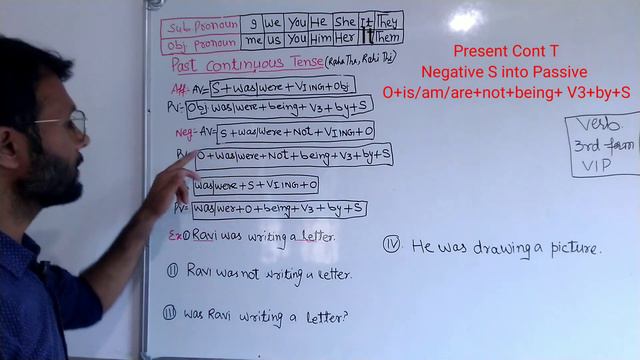 Sub Pronoun I we You He She It They
Obj Pronoun me us You Him Her It Them
Past Continuous Tense (Raha Tha, Rahi Thi)
Aff- AV= S+was/were+V1ING+Obj
PV= Obj was/were+being+V3+by+S
Neg- AV= S+was/were+Not+V1ING+O
PV= O+was/were+Not+being+V3+by+S
was/were+S+V1ING+O
PV= was/wer+O+being+V3+by+S
Ex① Ravi was writing a letter.
II Ravi was not writing a letter.
III was Ravi writing a letter?
IV. He was drawing a picture.
Present Cont T
Negative S into Passive
O+is/am/are+not+being+ V3+by+S
Verb
3rd form
VIP